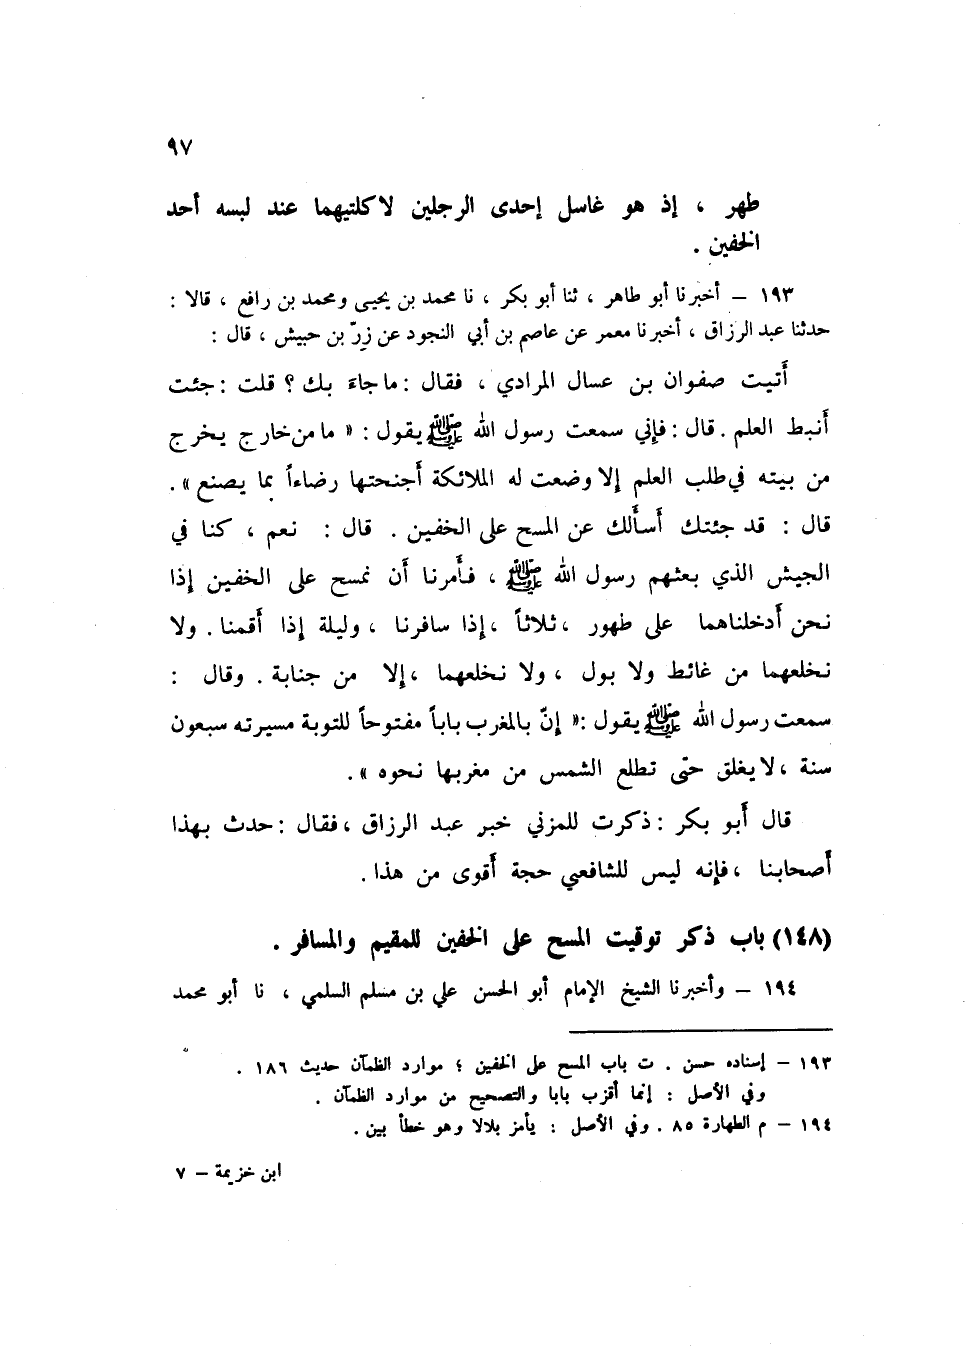 ٩٧
طهر ، إذ هو غاسل إحدى الرجلين لا كلتيهما عند لبسه أحد
الخفين .
١٩٣ – أخبرنا أبو طاهر ، ثنا أبو بكر ، نا محمد بن يحيى ومحمد بن رافع ، قالا :
حدثنا عبد الرزاق ، أخبرنا معمر عن عاصم بن أبي النجود عن زِرّ بن حبيش ، قال :
أَتيت صفوان بن عسال المرادي ، فقال : ما جاءَ بك ؟ قلت : جئت
أَنبط العلم . قال : فإني سمعت رسول الله ﷺ يقول : « ما من خارج يخرج
من بيته في طلب العلم إلا وضعت له الملائكة أَجنحتها رضاءاً بما يصنع » .
قال : قد جئتك أَسأَلك عن المسح على الخفين . قال : نعم ، كنا في
الجيش الذي بعثهم رسول الله ﷺ ، فأَمرنا أَن نمسح على الخفين إذا
نحن أَدخلناهما على طهور ، ثلاثاً ، إذا سافرنا ، وليلة إذا أَقمنا . ولا
نخلعهما من غائط ولا بول ، ولا نخلعهما ، إلا من جنابة . وقال :
سمعت رسول الله ﷺ يقول : « إنّ بالمغرب باباً مفتوحاً للتوبة مسيرته سبعون
سنة ، لا يغلق حتى تطلع الشمس من مغربها نحوه » .
قال أَبو بكر : ذكرت للمزني خبر عبد الرزاق ، فقال : حدث بهذا
أَصحابنا ، فإنه ليس للشافعي حجة أَقوى من هذا .
(١٤٨) باب ذكر توقيت المسح على الخفين للمقيم والمسافر .
١٩٤ – وأخبرنا الشيخ الإمام أبو الحسن علي بن مسلم السلمي ، نا أبو محمد
١٩٣ – إسناده حسن . ت باب المسح على الخفين ؛ موارد الظمآن حديث ١٨٦ .
وفي الأصل : إنما أقزب بابا والتصحيح من موارد الظمآن .
١٩٤ – م الطهارة ٨٥ . وفي الأصل : يأمز بلالا وهو خطأ بين .
ابن خزيمة – ٧